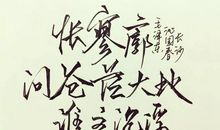 怅寥廓
问苍茫大地
谁主沉浮
沁园春
长沙
毛泽东